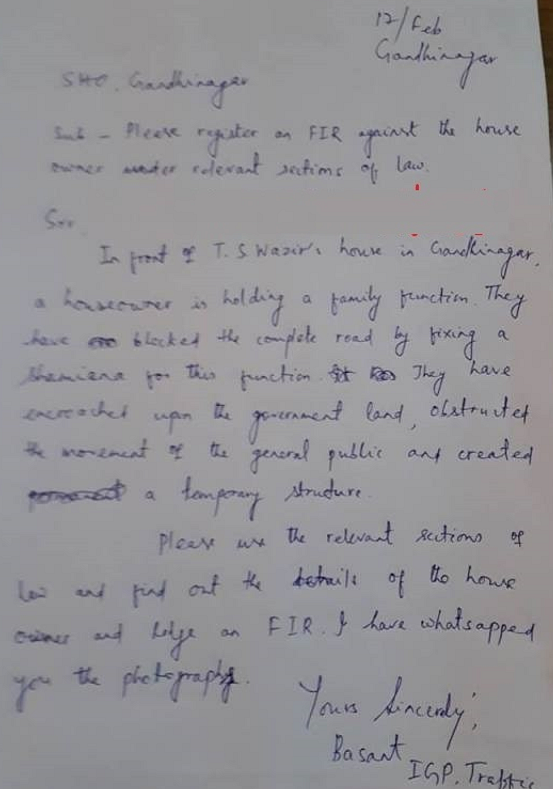 12/Feb
Gandhinagar
SHO, Gandhinagar
Sub - Please register an FIR against the house
owner under relevant sections of law.
Sir,
In front of T.S Wazir's house in Gandhinagar,
a houseowner is holding a family function. They
have blocked the complete road by fixing a
shamiana for this function. They have
encroached upon the government land, obstructed
the movement of the general public and created
a temporary structure.
Please use the relevant sections of
law and find out the details of the house
owner and lodge an FIR. I have whatsapped
you the photographs.
Yours Sincerely,
Basant
IGP, Traffic